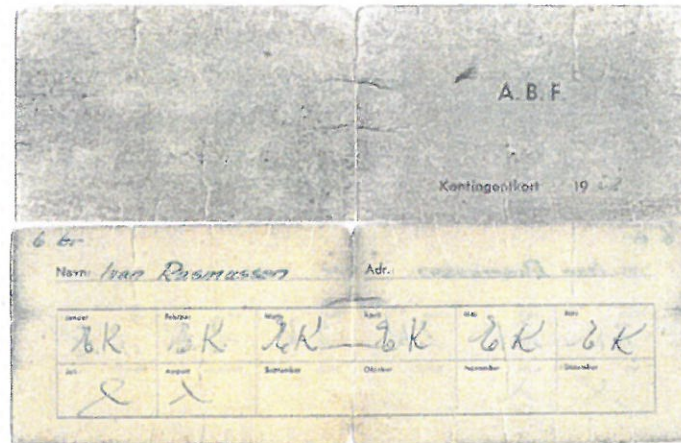 A.B.F.
Kontingentkort 19
6 kr
Navn: Ivan Rasmussen Adr.
Januar Februar Marts April Maj Juni
EK EK EK EK EK EK
Juli August September Oktober November December